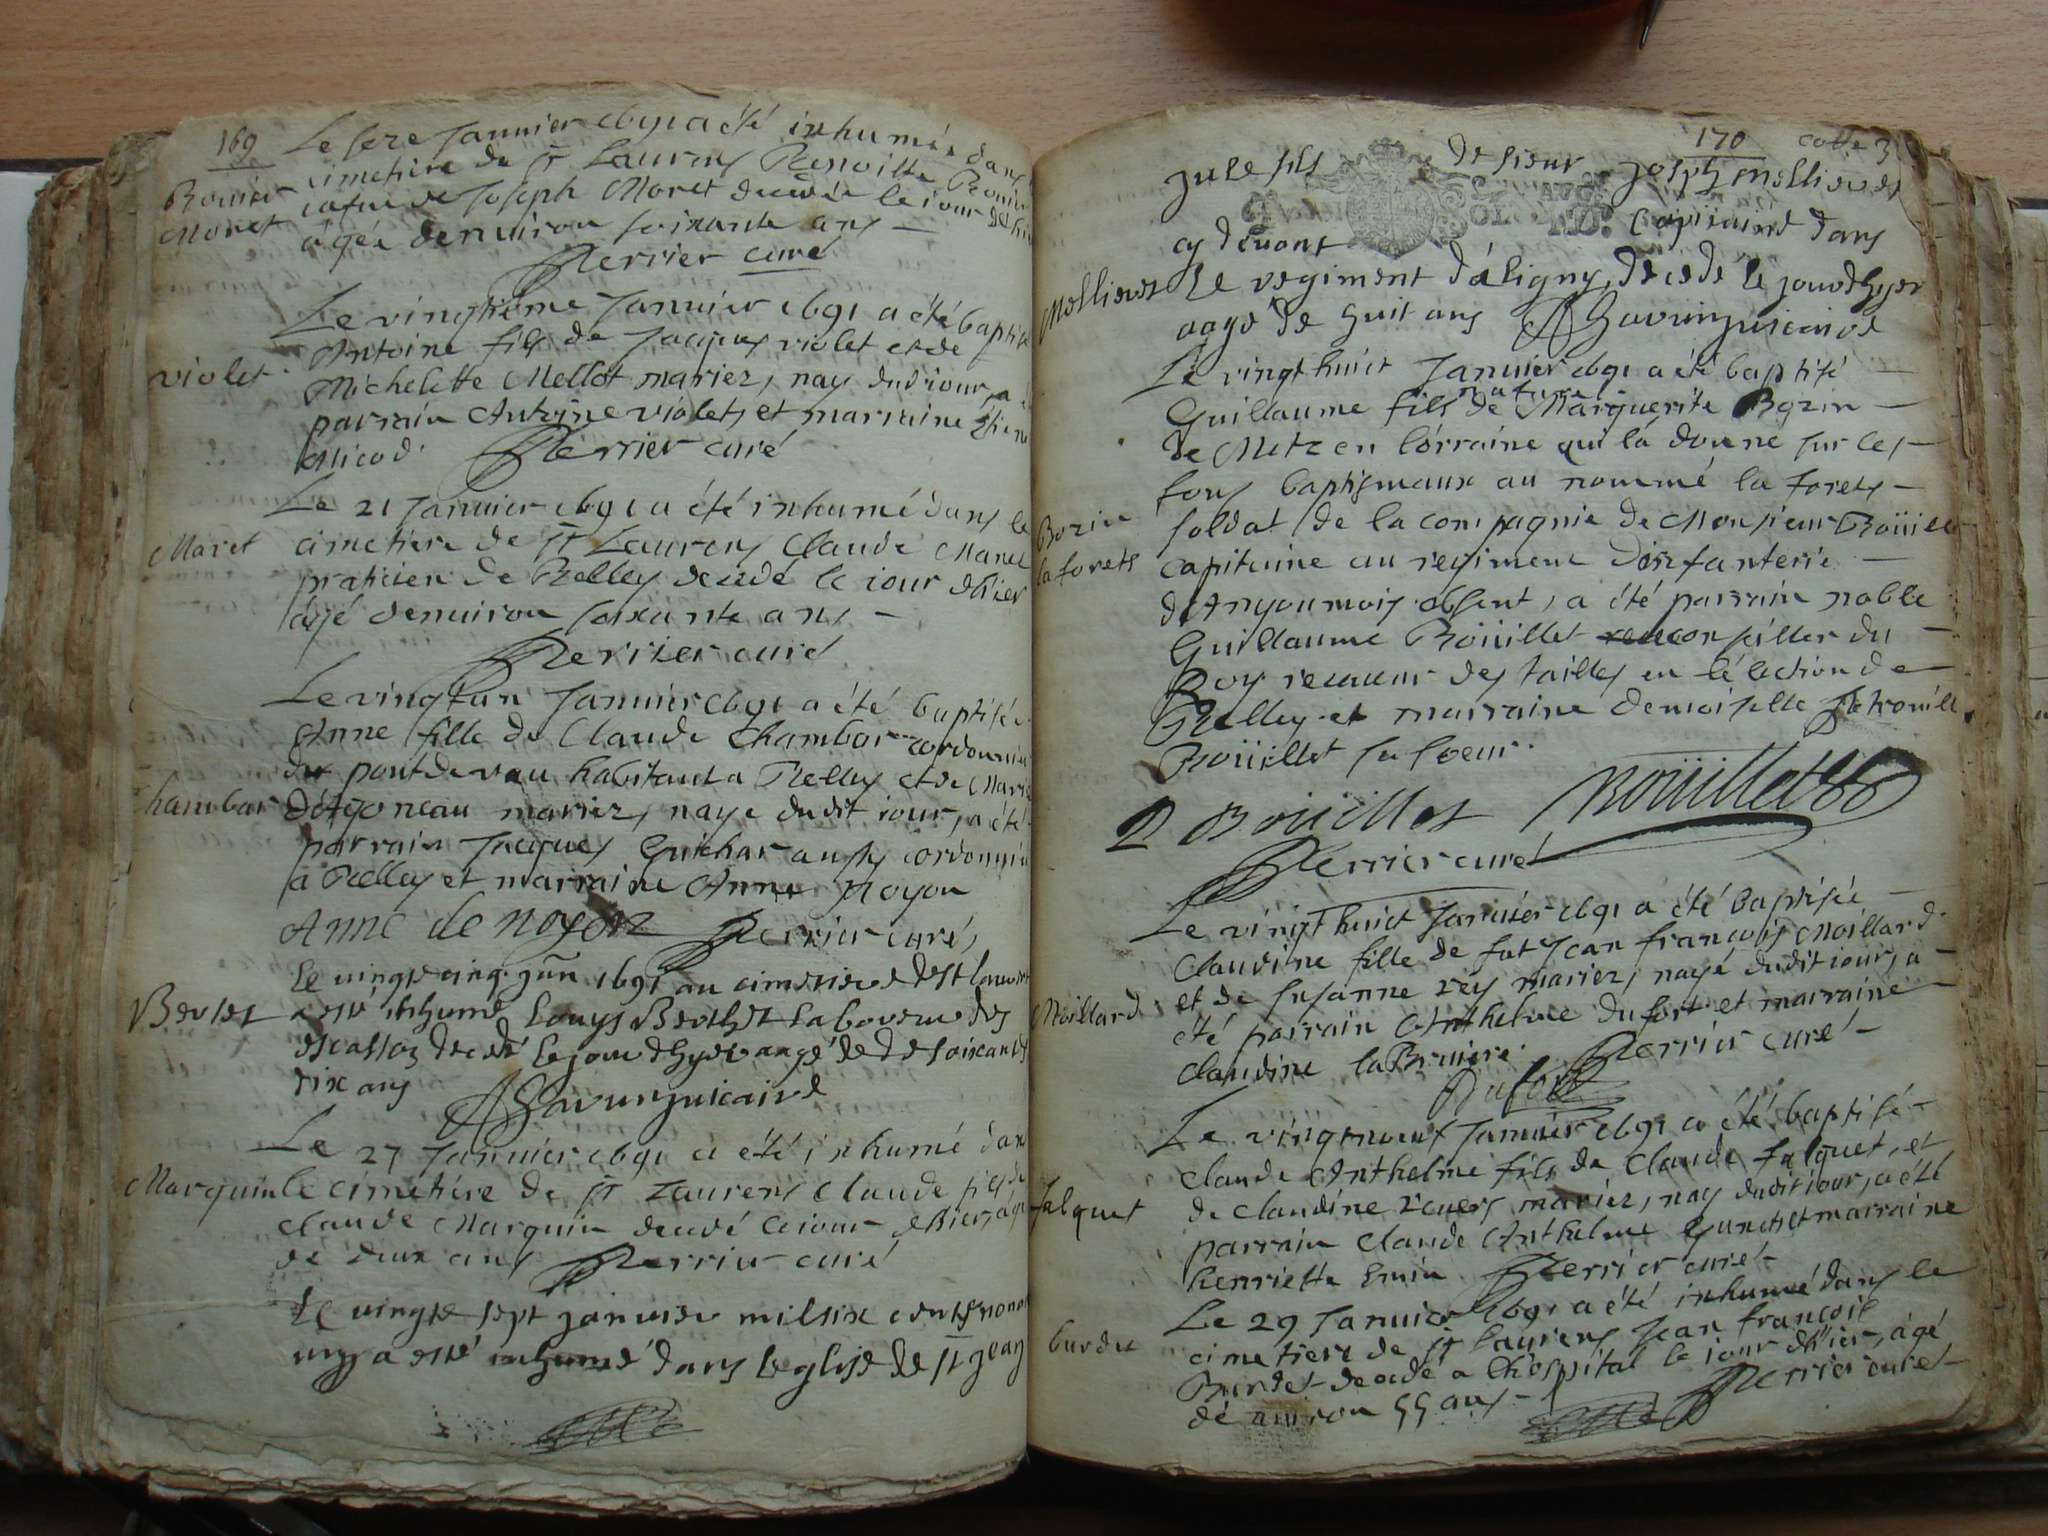 169
Le seze Januier 1691 a été inhumée dans
Bouvier
cimetiere de St Laurens Benoitte Bouvier
Moret
vefue de Joseph Moret decedée le iour d'hier
âgée denuiron soixante ans —
Perrier curé
Le vingtieme Januier 1691 a été baptisé
Antoine fils de Jacques violet et de
violet
Michelette Mellot mariez, nay dud iour, a
parrain Antoine violet, et marraine
Micod. Perrier curé
Le 21 Januier 1691 a été inhumé dans le
Maret
cimetiere de St Laurens Claude Maret
praticien de Belley decedé le iour d'hier
âgé denuiron soixante ans —
Perrier curé
Le vingt un Januier 1691 a été baptisée
Anne fille de Claude Chambar cordonnier
de pontdevau habitant a Belley et de Marie
Chambar
d'Agoneau mariez, naye dudit iour, a été
parrain Jacques Guichar aussy cordonnier
a Belley et marraine Anne Noyon
Anne de noyon Perrier curé
Le uingt cinq jan 1691 au cimetiere de st laurent
Bertet
a esté inhumé Louys Berthet laboureur des
escassaz decedé le jour dhyer aagé de de soixante
dix ans
A Gavuin vicaire
Le 27 Januier 1691 a été inhumé dans
Marquin
le cimetiere de St Laurens Claude fils de
Claude Marquin decedé le iour d'hier, âgé
de deux ans Perrier curé
Le uingt sept januier mil six cents nonante
ung a esté inhumé dans leglise de st jean
170 cotte 3
jule fils de sieur Joseph Mellieret
cy deuant Capitaine dans
Mellieret
le regiment d'aligny, decedé le jour dhyer
aagé de huit ans A Gavuin vicaire
Le vingt huict Januier 1691 a été baptisé —
Guillaume fils nature de Marguerite Bozin —
de Metz en lorraine qui l'a donné sur les —
fons baptismaux au nommé la forets —
Bozin
soldat de la compagnie de Monsieur Boüillet
la forets
capitaine au regiment d'infanterie —
d'Angoumois absent, a été parrain noble
Guillaume Boüillet conseiller du —
Roy receueur des tailles en l'élection de
Belley et marraine demoiselle Petronille
Boüillet sa soeur.
P Boüillet Boüillet
Perrier curé
Le vingt huict Januier 1691 a été baptisée —
Claudine fille de fut Jean françois Moillard
et de Susanne rey mariez, nayé dudit iour, a —
Moillard
été parrain Anthelme dufort et marraine
Claudine laBruiere. Perrier curé —
Dufort
Le vingt noeuf Januier 1691 a été baptisé —
Claude Anthelme fils de Claude falquet, et
falquet
de Claudine reuers mariez, nay dudit iour, a été
parrain Claude Anthelme Gunet et marraine
henriette Emin Perrier curé —
Le 29 Januier 1691 a été inhumé dans le
burdet
cimetiere de St Laurens Jean françois
Burdet decedé a l'hospital le iour d'hier, âgé
de enuiron 55 ans — Perrier curé —